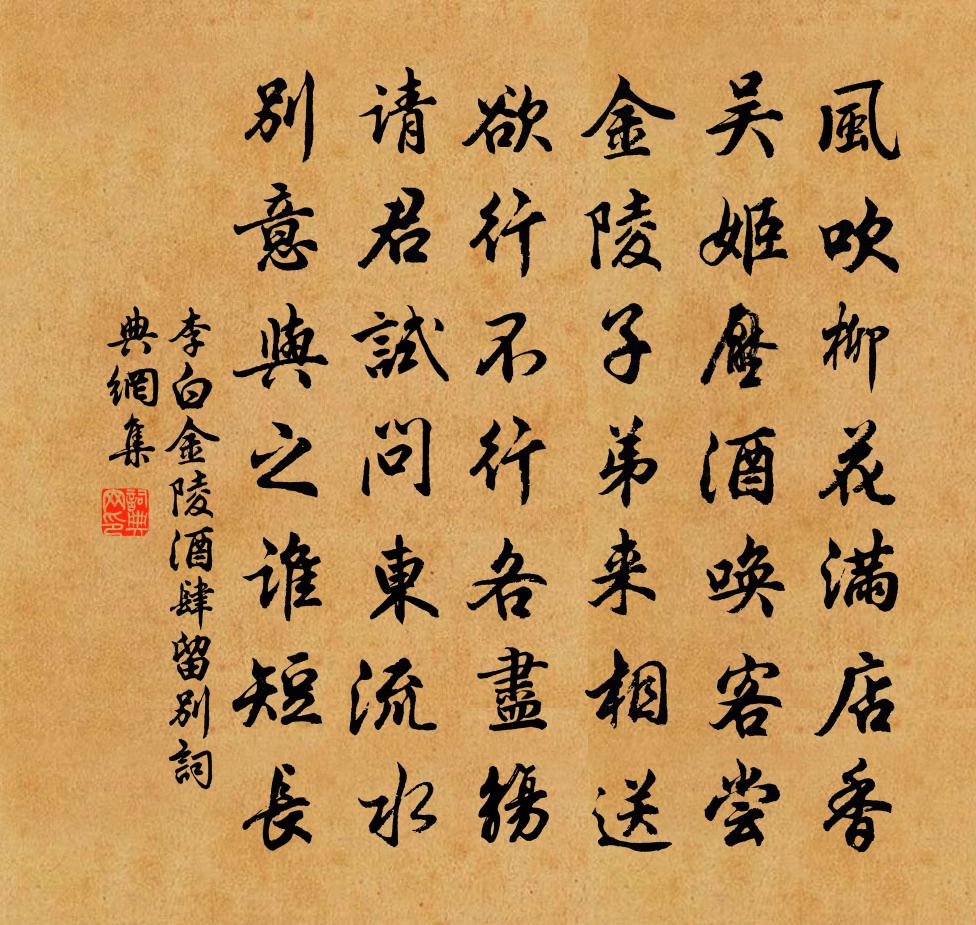 風吹柳花滿店香
吴姬壓酒喚客尝
金陵子弟来相送
欲行不行各盡觴
请君試問東流水
别意與之谁短長
李白金陵酒肆留别詞
典網集
詞典
网印